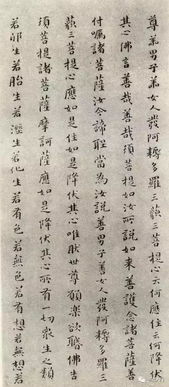 尊善男子善女人發阿耨多羅三藐三菩提心云何應住云何降伏
其心佛言善哉善哉須菩提如汝所說如來善護念諸菩薩善
付囑諸菩薩汝今諦聽當為汝說善男子善女人發阿耨多羅三
藐三菩提心應如是住如是降伏其心唯然世尊願樂欲聞佛告
須菩提諸菩薩摩訶薩應如是降伏其心所有一切眾生之類
若卵生若胎生若濕生若化生若有色若無色若有想若無想若